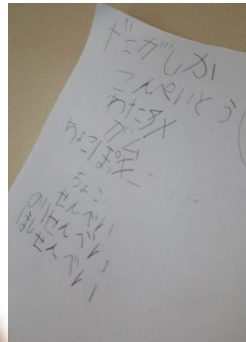 だがしか
こんぺいとう
わたあメ
ガム
ちょこ
せんべい
のりせんべい
ほしせんべい